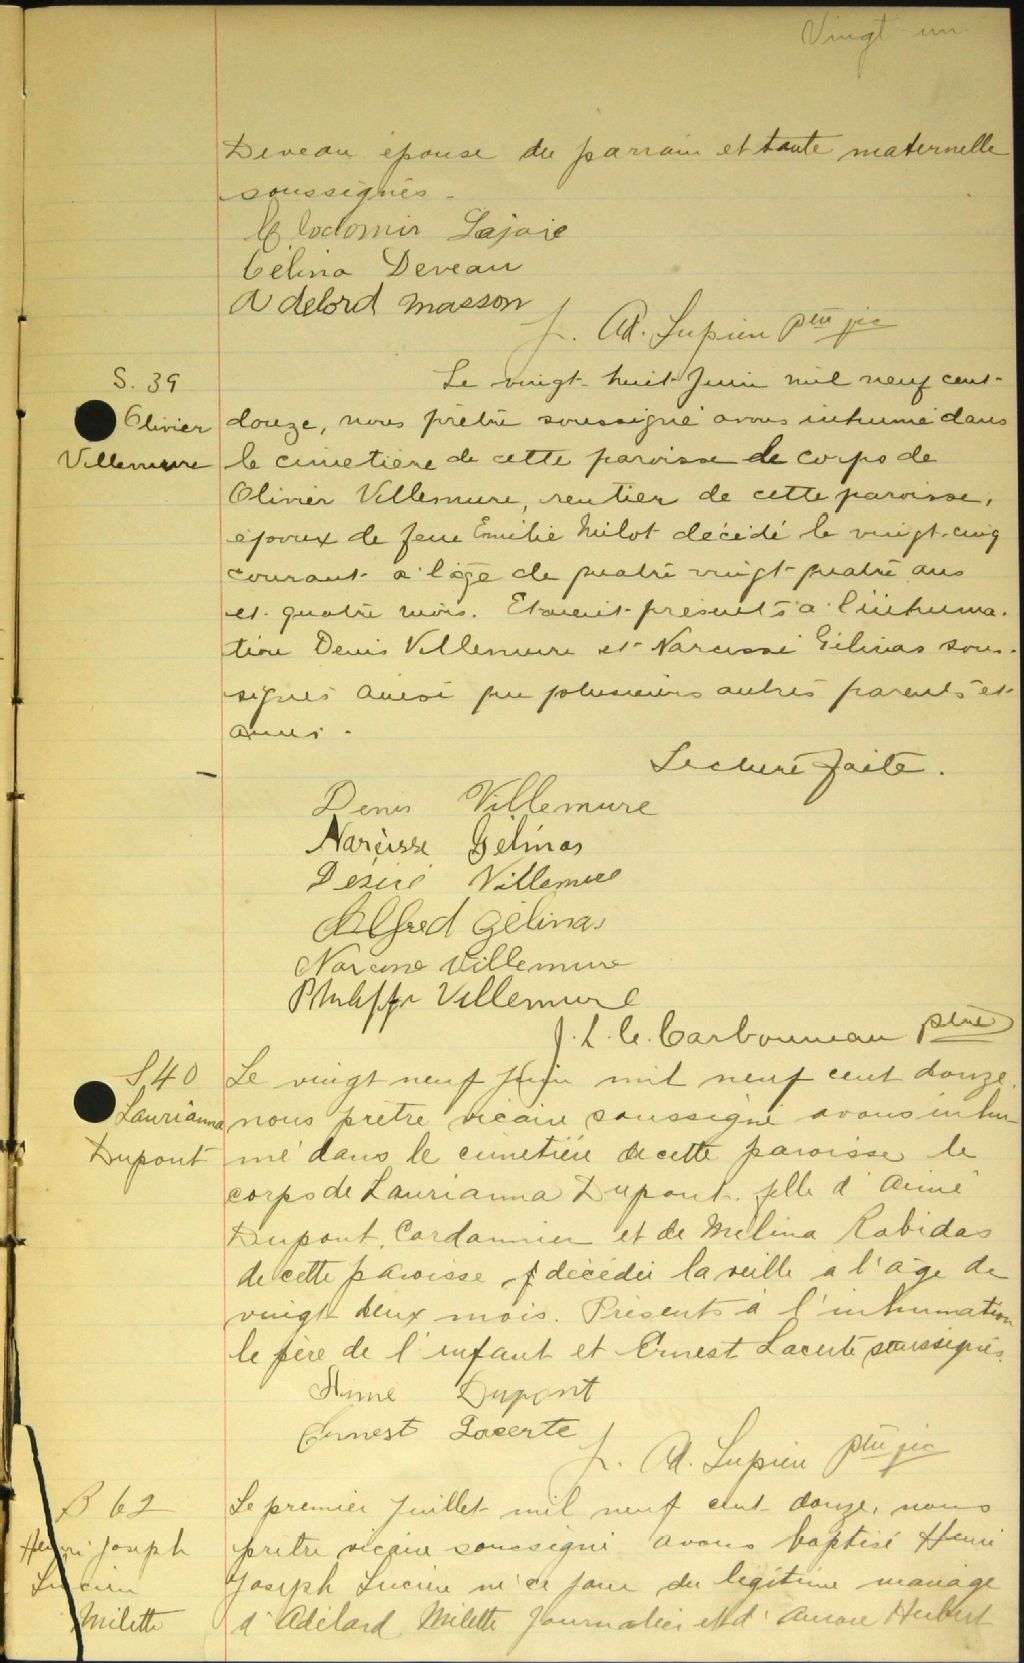 Vingt-un
Deveau épouse du parrain et tante maternelle
soussignés.
Clodomir Lajoie
Célina Deveau
Adelord Masson
J. Ad. Lupien ptre vic
S. 39
Olivier
Villemure
Le vingt-huit Juin mil neuf cent-
douze, nous prêtre soussigné avons inhumé dans
le cimetière de cette paroisse le corps de
Olivier Villemure, rentier de cette paroisse,
époux de feue Emilie Milot décédé le vingt-cinq
courant à l'âge de quatre vingt-quatre ans
et quatre mois. Etaient présents à l'inhuma-
tion Denis Villemure et Narcisse Gélinas sous-
signés ainsi que plusieurs autres parents et
amis.
Lecture faite.
Denis Villemure
Narcisse Gélinas
Désiré Villemure
Alfred Gélinas
Narcisse Villemure
Philippe Villemure
J. L. C. Carbonneau ptre
S 40
Laurianna
Dupont
Le vingt neuf juin mil neuf cent douze,
nous prêtre vicaire soussigné avons inhu-
mé dans le cimetière de cette paroisse le
corps de Laurianna Dupont, fille d'Aimé
Dupont, Cordonnier et de Mélina Robidas
de cette paroisse, décédée la veille à l'âge de
vingt deux mois. Présents à l'inhumation
le père de l'enfant et Ernest Lacerte soussignés.
Aimé Dupont
Ernest Lacerte
J. Ad. Lupien ptre vic
B 62
Henri Joseph
Lucien
Milette
Le premier Juillet mil neuf cent douze, nous
prêtre vicaire soussigné avons baptisé Henri
Joseph Lucien né ce jour du légitime mariage
d'Adélard Milette Journalier et d'Aurore Hebert